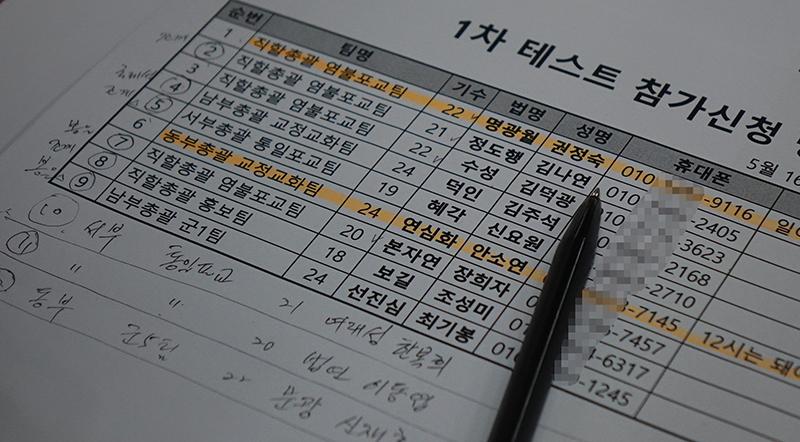 1차 테스트 참가신청
5월 16
순번 팀명 기수 법명 성명 휴대폰
1 직할총괄 염불포교팀 22 명광월 권정숙 010 -9116
② 직할총괄 염불포교팀 21 정도행 김나연 010 -2405
3 직할총괄 염불포교팀 22 수성 김덕광 010 -3623
④ 남부총괄 교정교화팀 24 덕인 김주석 -2168
⑤ 서부총괄 통일포교팀 19 혜각 신요원 -2710
6 동부총괄 교정교화팀 24 연심화 안소연 -7145 12시는 돼야
⑦ 직할총괄 염불포교팀 20 본자연 장희자 -7457
⑧ 직할총괄 홍보팀 18 보길 조성미 -6317
⑨ 남부총괄 군1팀 24 선진심 최기봉 -1245
⑩ 서부 통일포교 21 여래성
⑪ " " 20 법연
동부 군5팀 22 문광